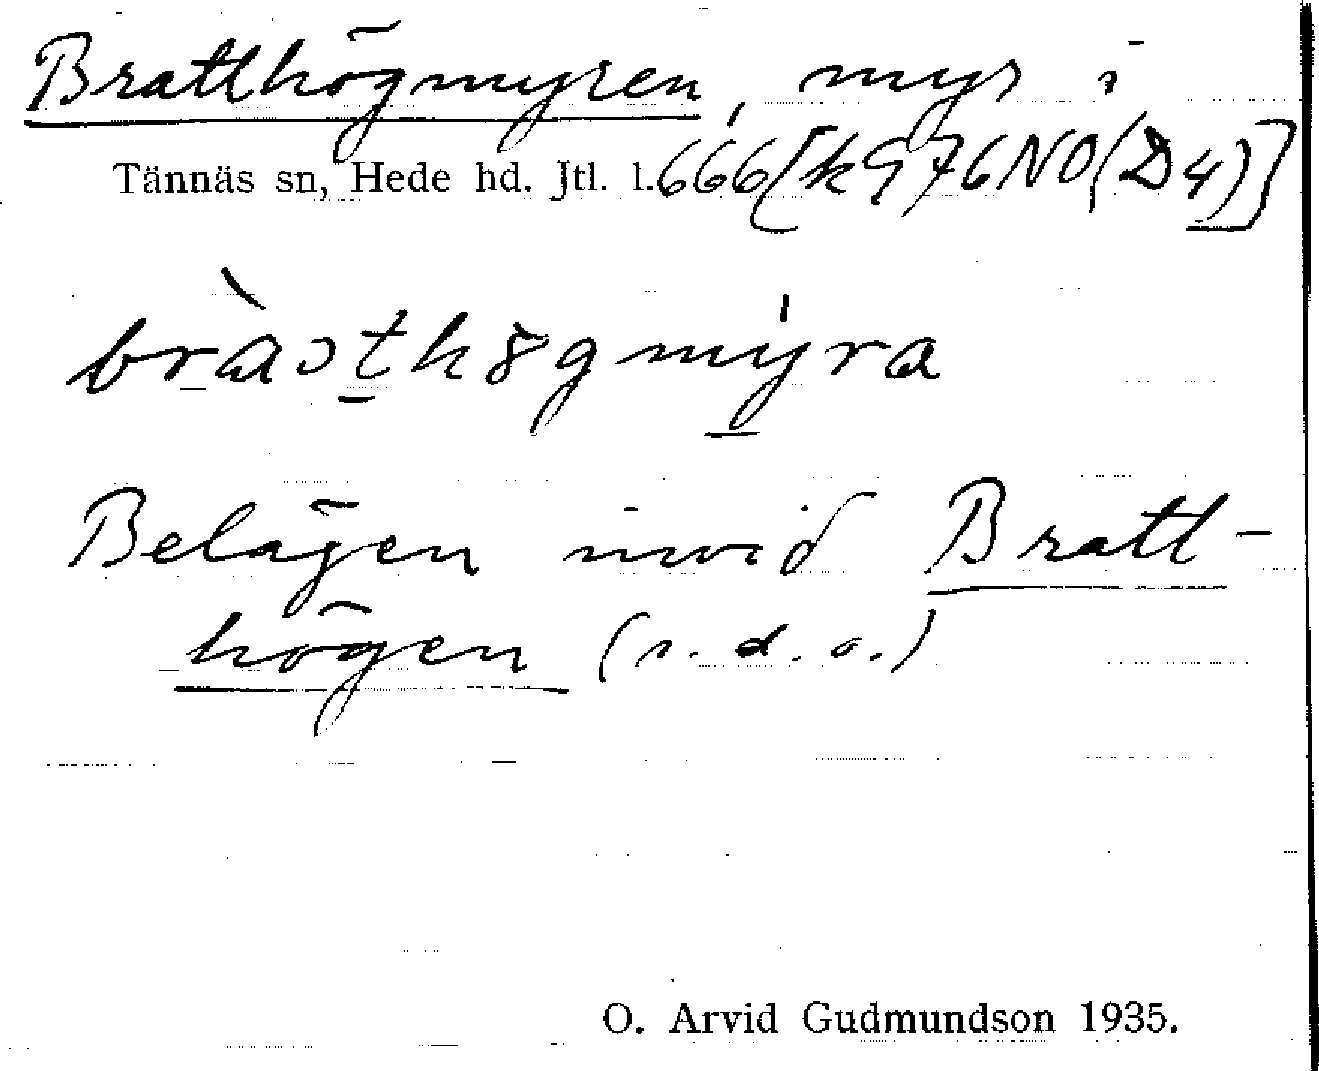 Bratthögmyren, myr i
Tännäs sn, Hede hd. Jtl. l. 666 [k 976 NO (D4)]
Belägen invid Bratt-
högen (s. d. o.)
O. Arvid Gudmundson 1935.